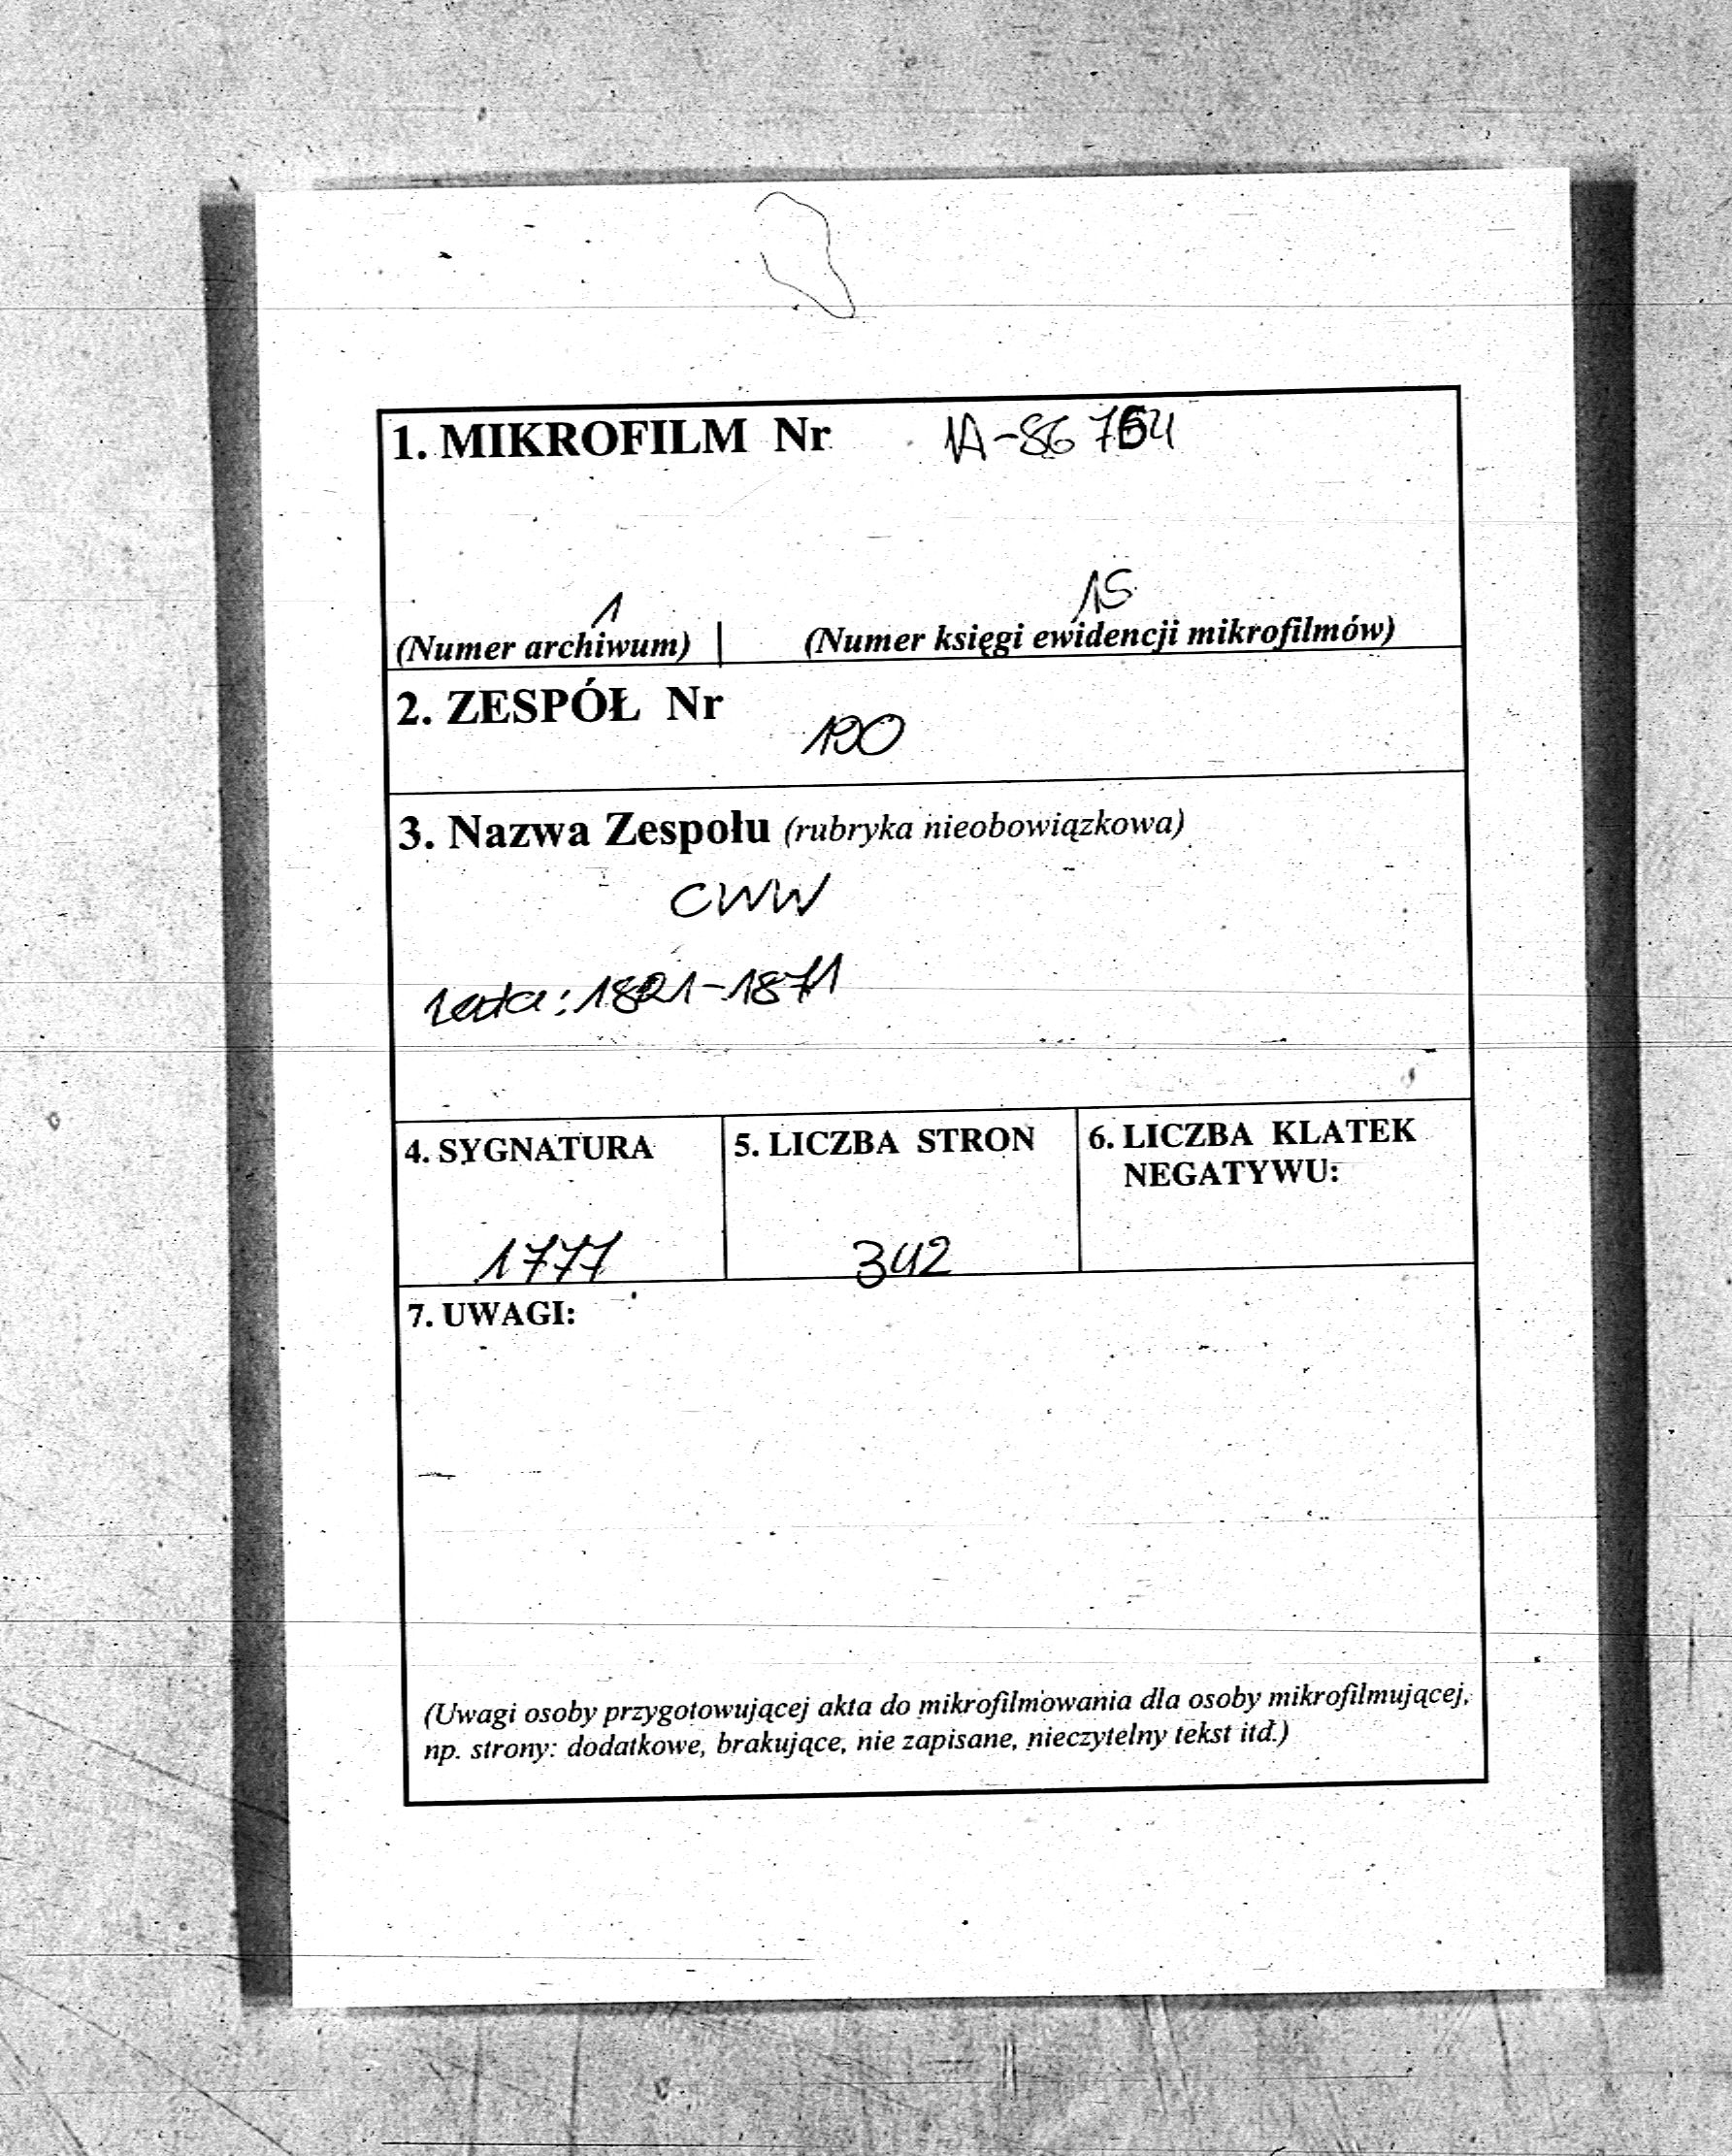 1. MIKROFILM Nr 1A-86 764
1 15
(Numer archiwum) | (Numer księgi ewidencji mikrofilmów)
2. ZESPÓŁ Nr
190
3. Nazwa Zespołu (rubryka nieobowiązkowa)
CWW
Lata: 1821-1871
4. SYGNATURA 5. LICZBA STRON 6. LICZBA KLATEK
NEGATYWU:
1777 342
7. UWAGI:
(Uwagi osoby przygotowującej akta do mikrofilmowania dla osoby mikrofilmującej,
np. strony: dodatkowe, brakujące, nie zapisane, nieczytelny tekst itd.)